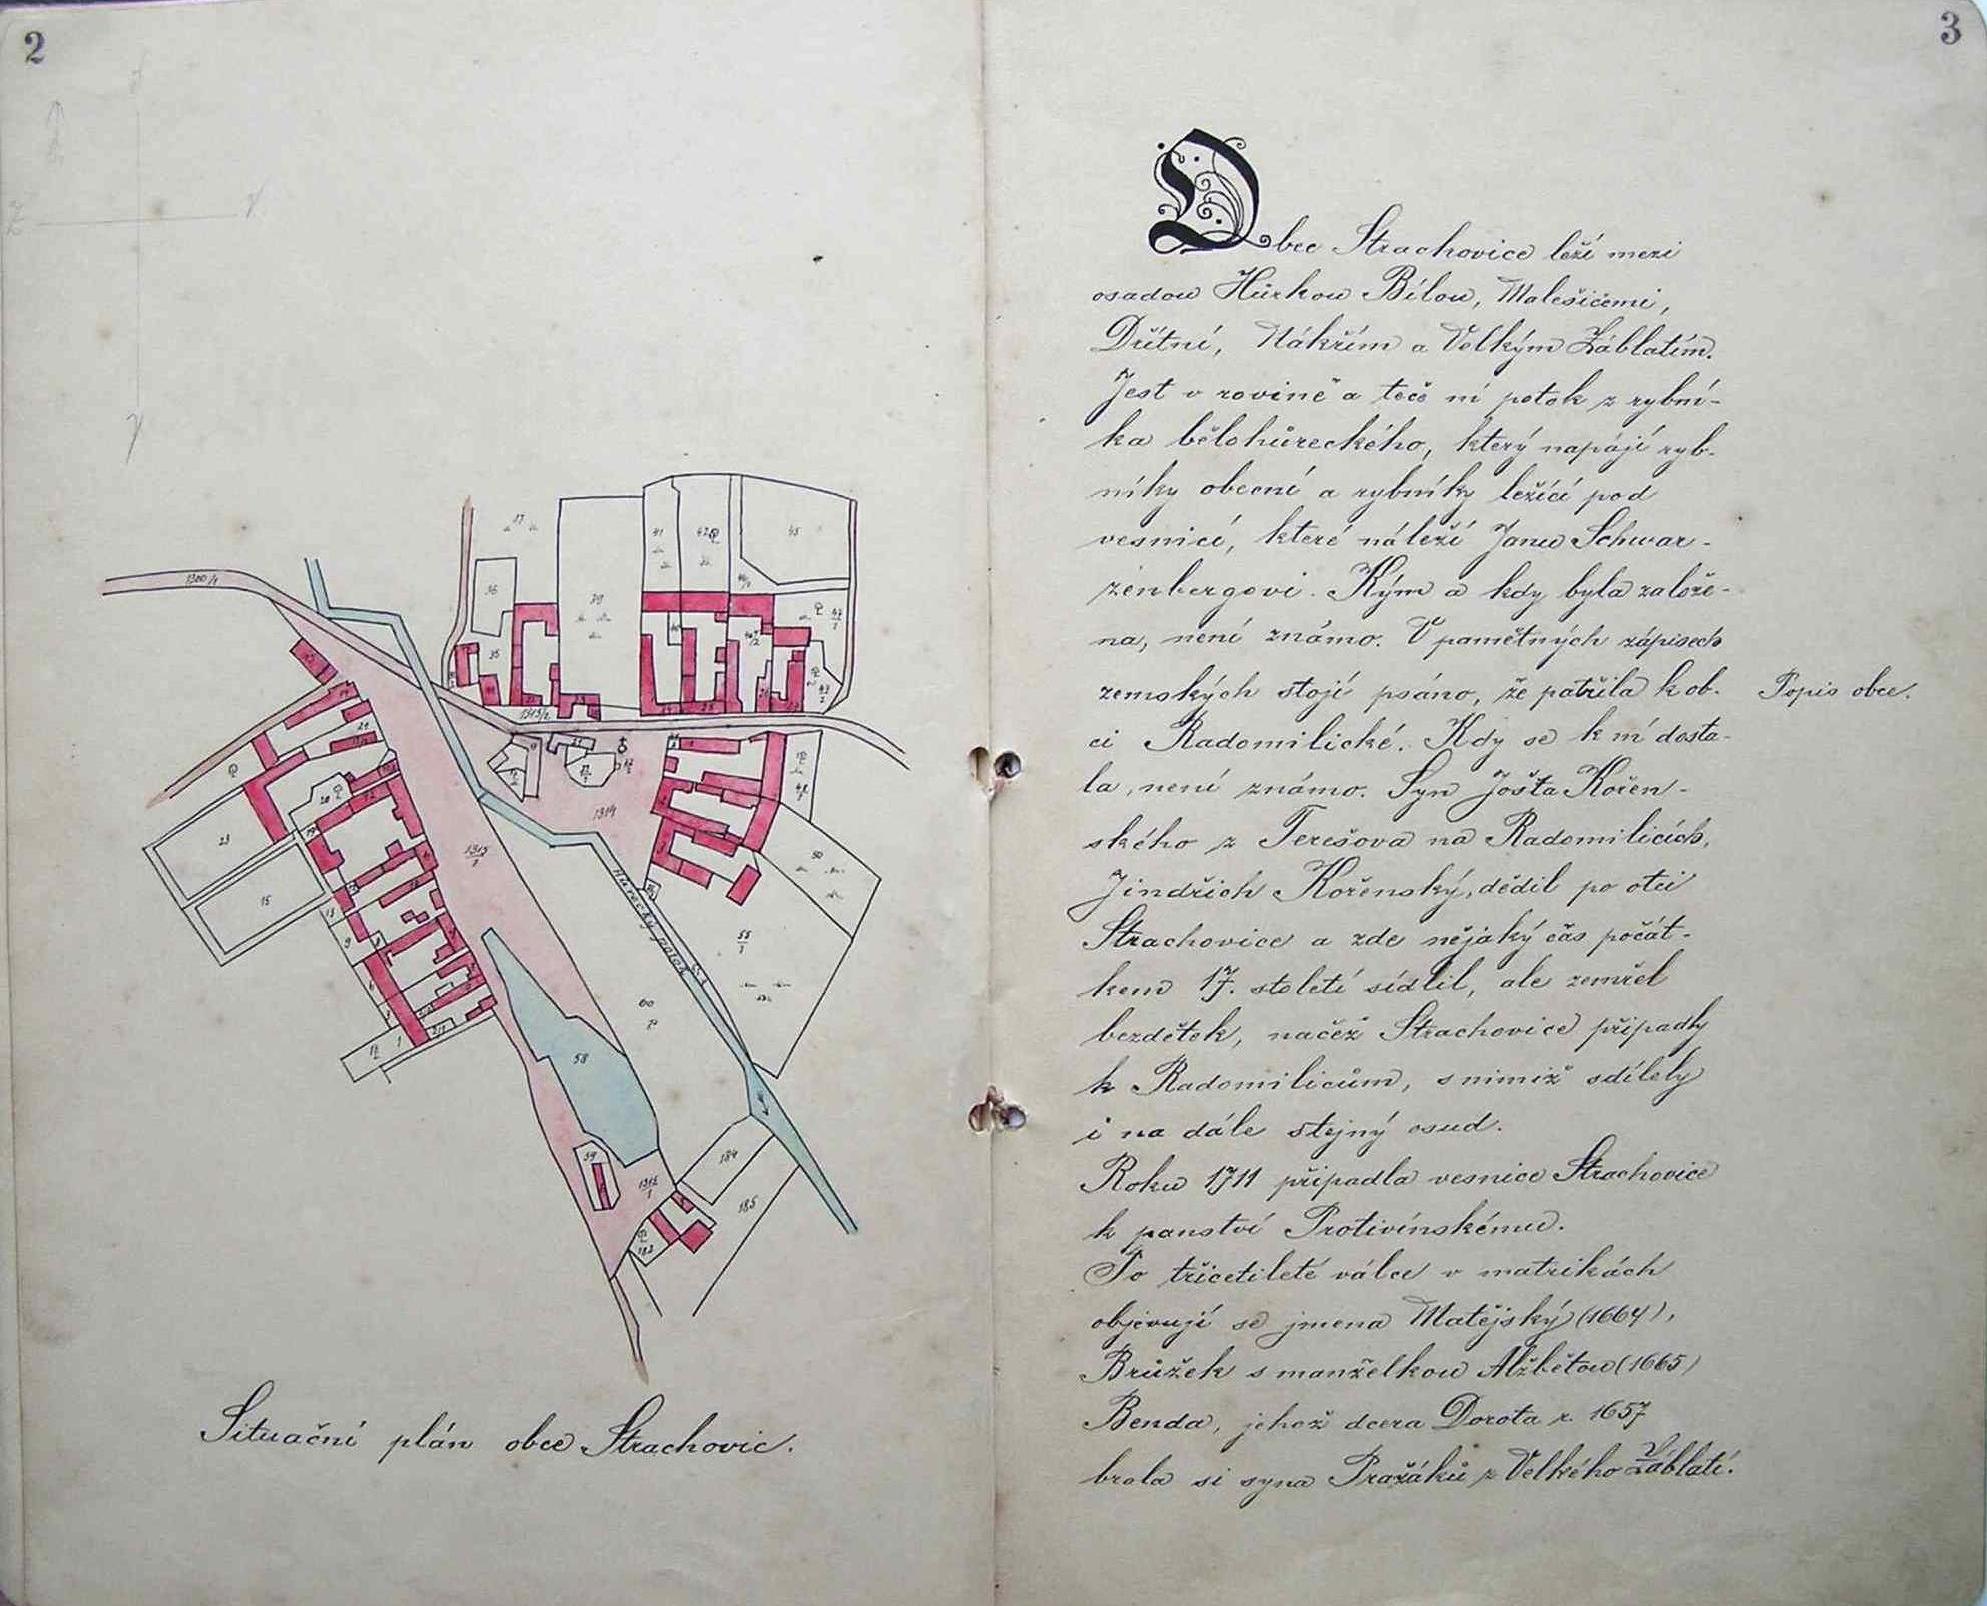 2
1300/1
37
36
35
39
41
42
45
1315/2
1314
1315/1
23
15
Hůrecký potok
50
55/1
60
58
59
1312/1
184
185
182
Situační plán obce Strachovic.
3
Obec Strachovice leží mezi
osadou Hůrkou Bílou, Malešicemi,
Dřítní, Nákřím a Velkým Záblatím.
Jest v rovině a teče ní potok z rybní-
ka bělohůreckého, který napájí ryb-
níky obecní a rybníky ležící pod
vesnicí, které náleží Janu Schwar-
zenbergovi. Kým a kdy byla založe-
na, není známo. V pamětných zápisech
zemských stojí psáno, že patřila k ob-
Popis obce.
ci Radomilické. Kdy se k ní dosta-
la, není známo. Syn Jošta Kořen-
ského z Terešova na Radomilicích,
Jindřich Kořenský, dědil po otci
Strachovice a zde nějaký čas počát-
kem 17. století sídlil, ale zemřel
bezdětek, načež Strachovice připadly
k Radomilicům, s nimiž sdílely
i na dále stejný osud.
Roku 1711 připadla vesnice Strachovice
k panství Protivínskému.
Po třicetileté válce v matrikách
objevují se jmena Matějský (1664),
Brůžek s manželkou Alžbětou (1665)
Benda, jehož dcera Dorota r. 1657
brala si syna Pražáků z Velkého Záblatí.